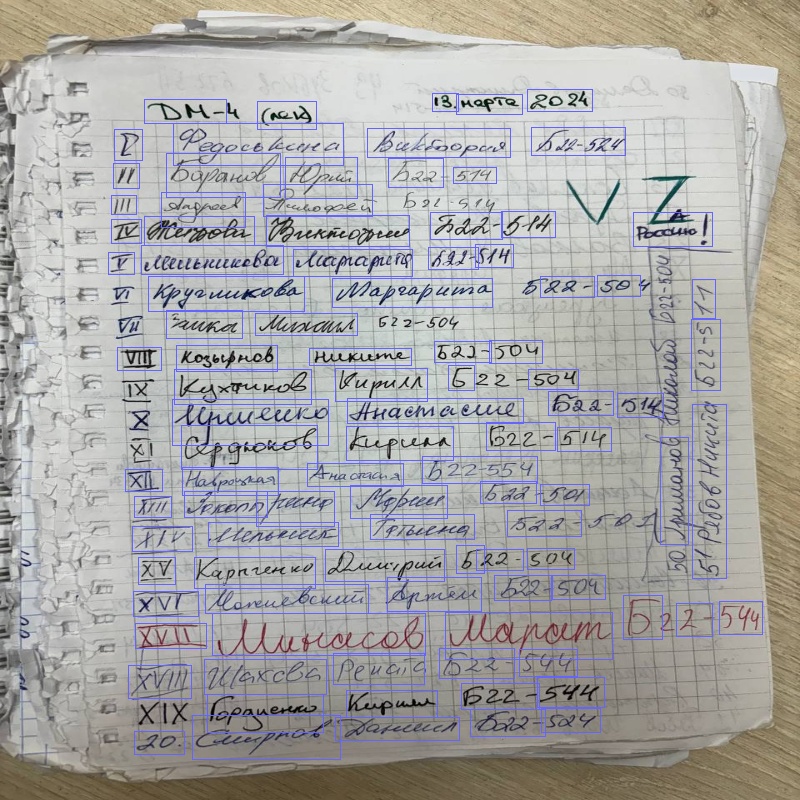 ДМ-4 (лек) 13. марта 2024
I Федоськина Виктория Б22-524
II Баранов Юрий Б22-514
III Андреев Тимофей Б22-514
IV Жукова Виктория Б22-514
V Мельникова Маргарита Б22-514
VI Кругликова Маргарита Б22-504
VII Заика Михаил Б22-504
VIII Козырнов никите Б22-504
IX Кухтиков Кирилл Б22-504
X Ирненко Анастасие Б22-514
XI Сердюков Кирилл Б22-514
XII Навроцкая Анастасия Б22-554
XIII Мария Б22-501
XIV Мельник Татьяна Б22-503
XV Карпченко Дмитрий Б22-504
XVI Можиевский Артём Б22-504
XVII Минасов Марат Б22-544
XVIII Шахова Рената Б22-544
XIX Гордиенко Кирилл Б22-544
20. Смирнов Даниил Б22-524
V Z
Zа Россию!
50 Ариманов Николай Б22-504
51 Рябов Никита Б22-511